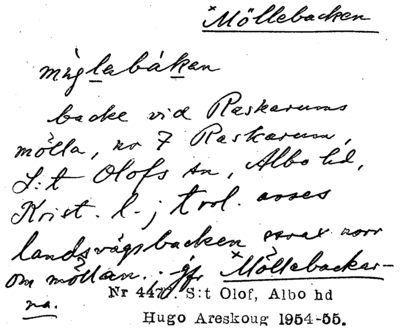 ×Möllebacken
backe vid Raskarums
mölla, nr 7 Raskarum,
S:t Olofs sn, Albo hd,
Krist. l.; trol. avses
landsvägsbacken strax norr
om möllan. jfr ×Möllebackar-
na.
Nr 4477. S:t Olof, Albo hd
Hugo Areskoug 1954-55.